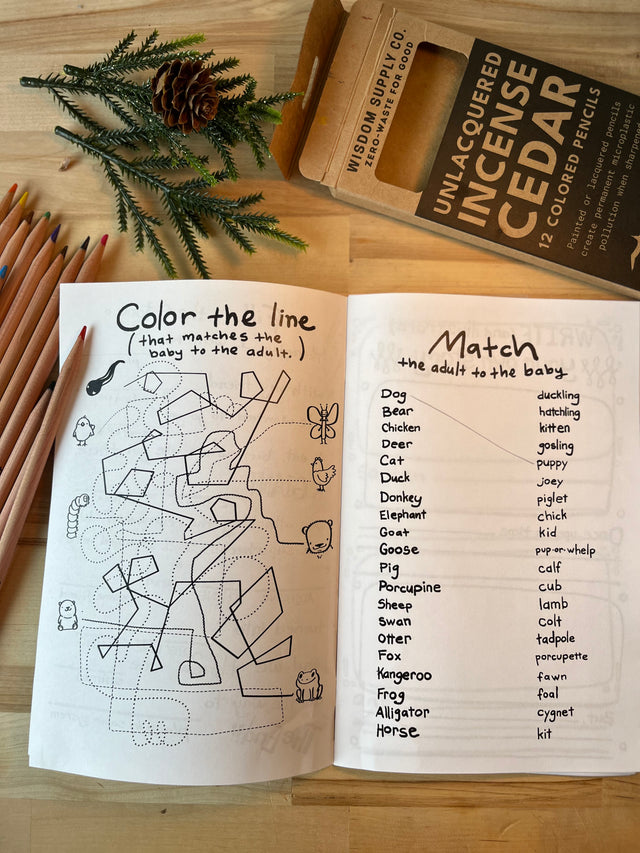 WISDOM SUPPLY CO.
ZERO-WASTE FOR GOOD
UNLACQUERED
INCENSE
CEDAR
12 COLORED PENCILS
Painted or lacquered pencils
create permanent microplastic
pollution when sharpen
Color the line
(that matches the
baby to the adult.)
Match
the adult to the baby
Dog
Bear
Chicken
Deer
Cat
Duck
Donkey
Elephant
Goat
Goose
Pig
Porcupine
Sheep
Swan
Otter
Fox
Kangaroo
Frog
Alligator
Horse
duckling
hatchling
kitten
gosling
puppy
joey
piglet
chick
kid
pup-or-whelp
calf
cub
lamb
colt
tadpole
porcupette
fawn
foal
cygnet
kit